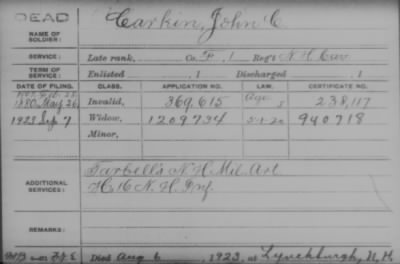 DEAD
NAME OF SOLDIER: Carkin, John C.
SERVICE: Late rank, Co. F, 1 Reg't N.H. Cav
TERM OF SERVICE: Enlisted , 1 Discharged , 1
DATE OF FILING. CLASS. APPLICATION NO. LAW. CERTIFICATE NO.
1880 May 26 Invalid, 369,615 Age 238,117
1923 Sep 7 Widow, 1209734 5-1-20 940718
Minor,
ADDITIONAL SERVICES: Tarbell's N H Mil. Art.
H 16 N. H. Inf.
REMARKS:
Died Aug 6, 1923, at Lynchburgh, N.H.